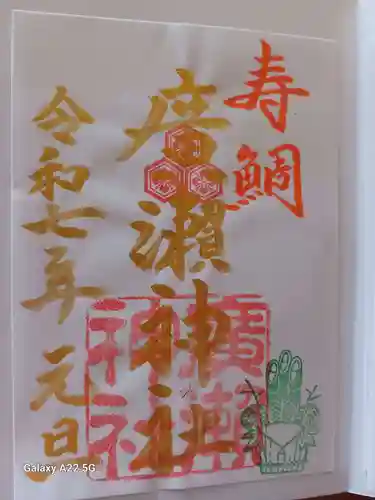 寿鯛
廣瀬神社
令和七年 元旦
廣瀬神社
Galaxy A22 5G